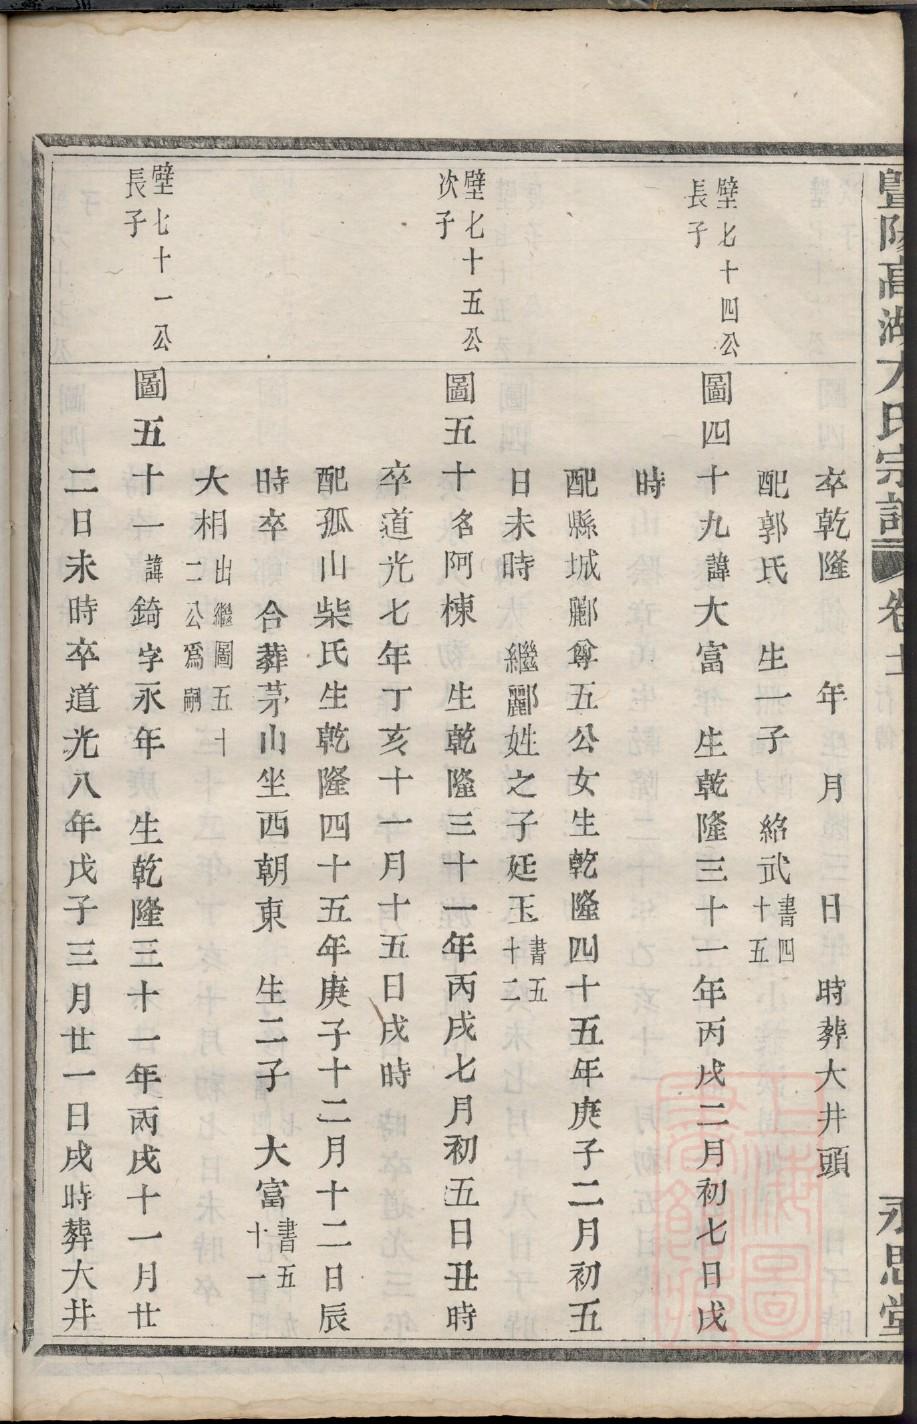 暨陽高湖方氏宗譜 卷十 永思堂
卒乾隆 年 月 日 時葬大井頭
配郭氏 生一子 絡武書四十五
璧七十四公長子
圖四十九諱大富 生乾隆三十一年丙戌二月初七日戌
時
配縣城酈尊五公女生乾隆四十五年庚子二月初五
日未時 繼酈姓之子廷玉書五十二
璧七十五公次子
圖五十名阿棟 生乾隆三十一年丙戌七月初五日丑時
卒道光七年丁亥十一月十五日戌時
配孤山柴氏生乾隆四十五年庚子十二月十二日辰
時卒 合葬茅山坐西朝東 生二子 大富書五十一
大相出繼圖五十二公爲嗣
璧七十一公長子
圖五十一諱錡字永年 生乾隆三十一年丙戌十一月廿
二日未時卒道光八年戊子三月廿一日戌時葬大井